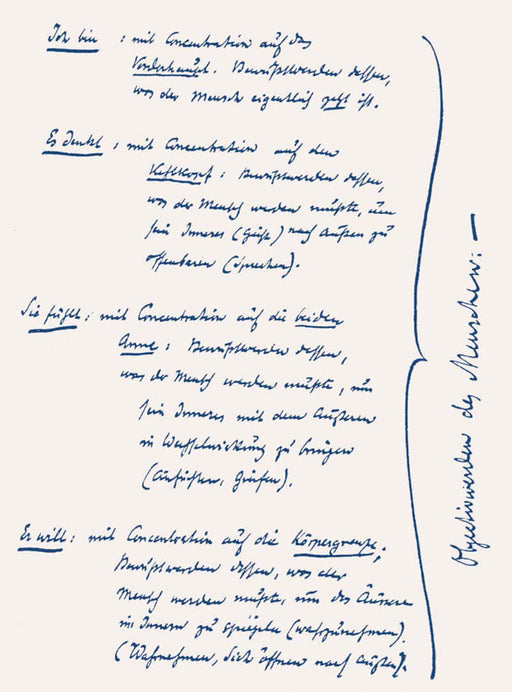 Ich bin : mit Concentration auf das
Vorderhaupt. Bewußtwerden dessen,
was der Mensch eigentlich jetzt ist.
Es denkt : mit Concentration auf den
Kehlkopf : Bewußtwerden dessen,
was der Mensch werden müßte, um
sein Inneres (Geist) nach Außen zu
offenbaren (Sprechen).
Sie fühlt : mit Concentration auf die beiden
Arme : Bewußtwerden dessen,
was der Mensch werden müßte, um
sein Inneres mit dem Äußeren
in Wechselwirkung zu bringen
(Anfühlen, Greifen).
Es will : mit Concentration auf die Körpergrenze;
Bewußtwerden dessen, was der
Mensch werden müßte, um das Äußere
im Innern zu spiegeln (wahrzunehmen).
(Wahrnehmen, sich öffnen nach Außen).
Objectivwerden des Menschen: —